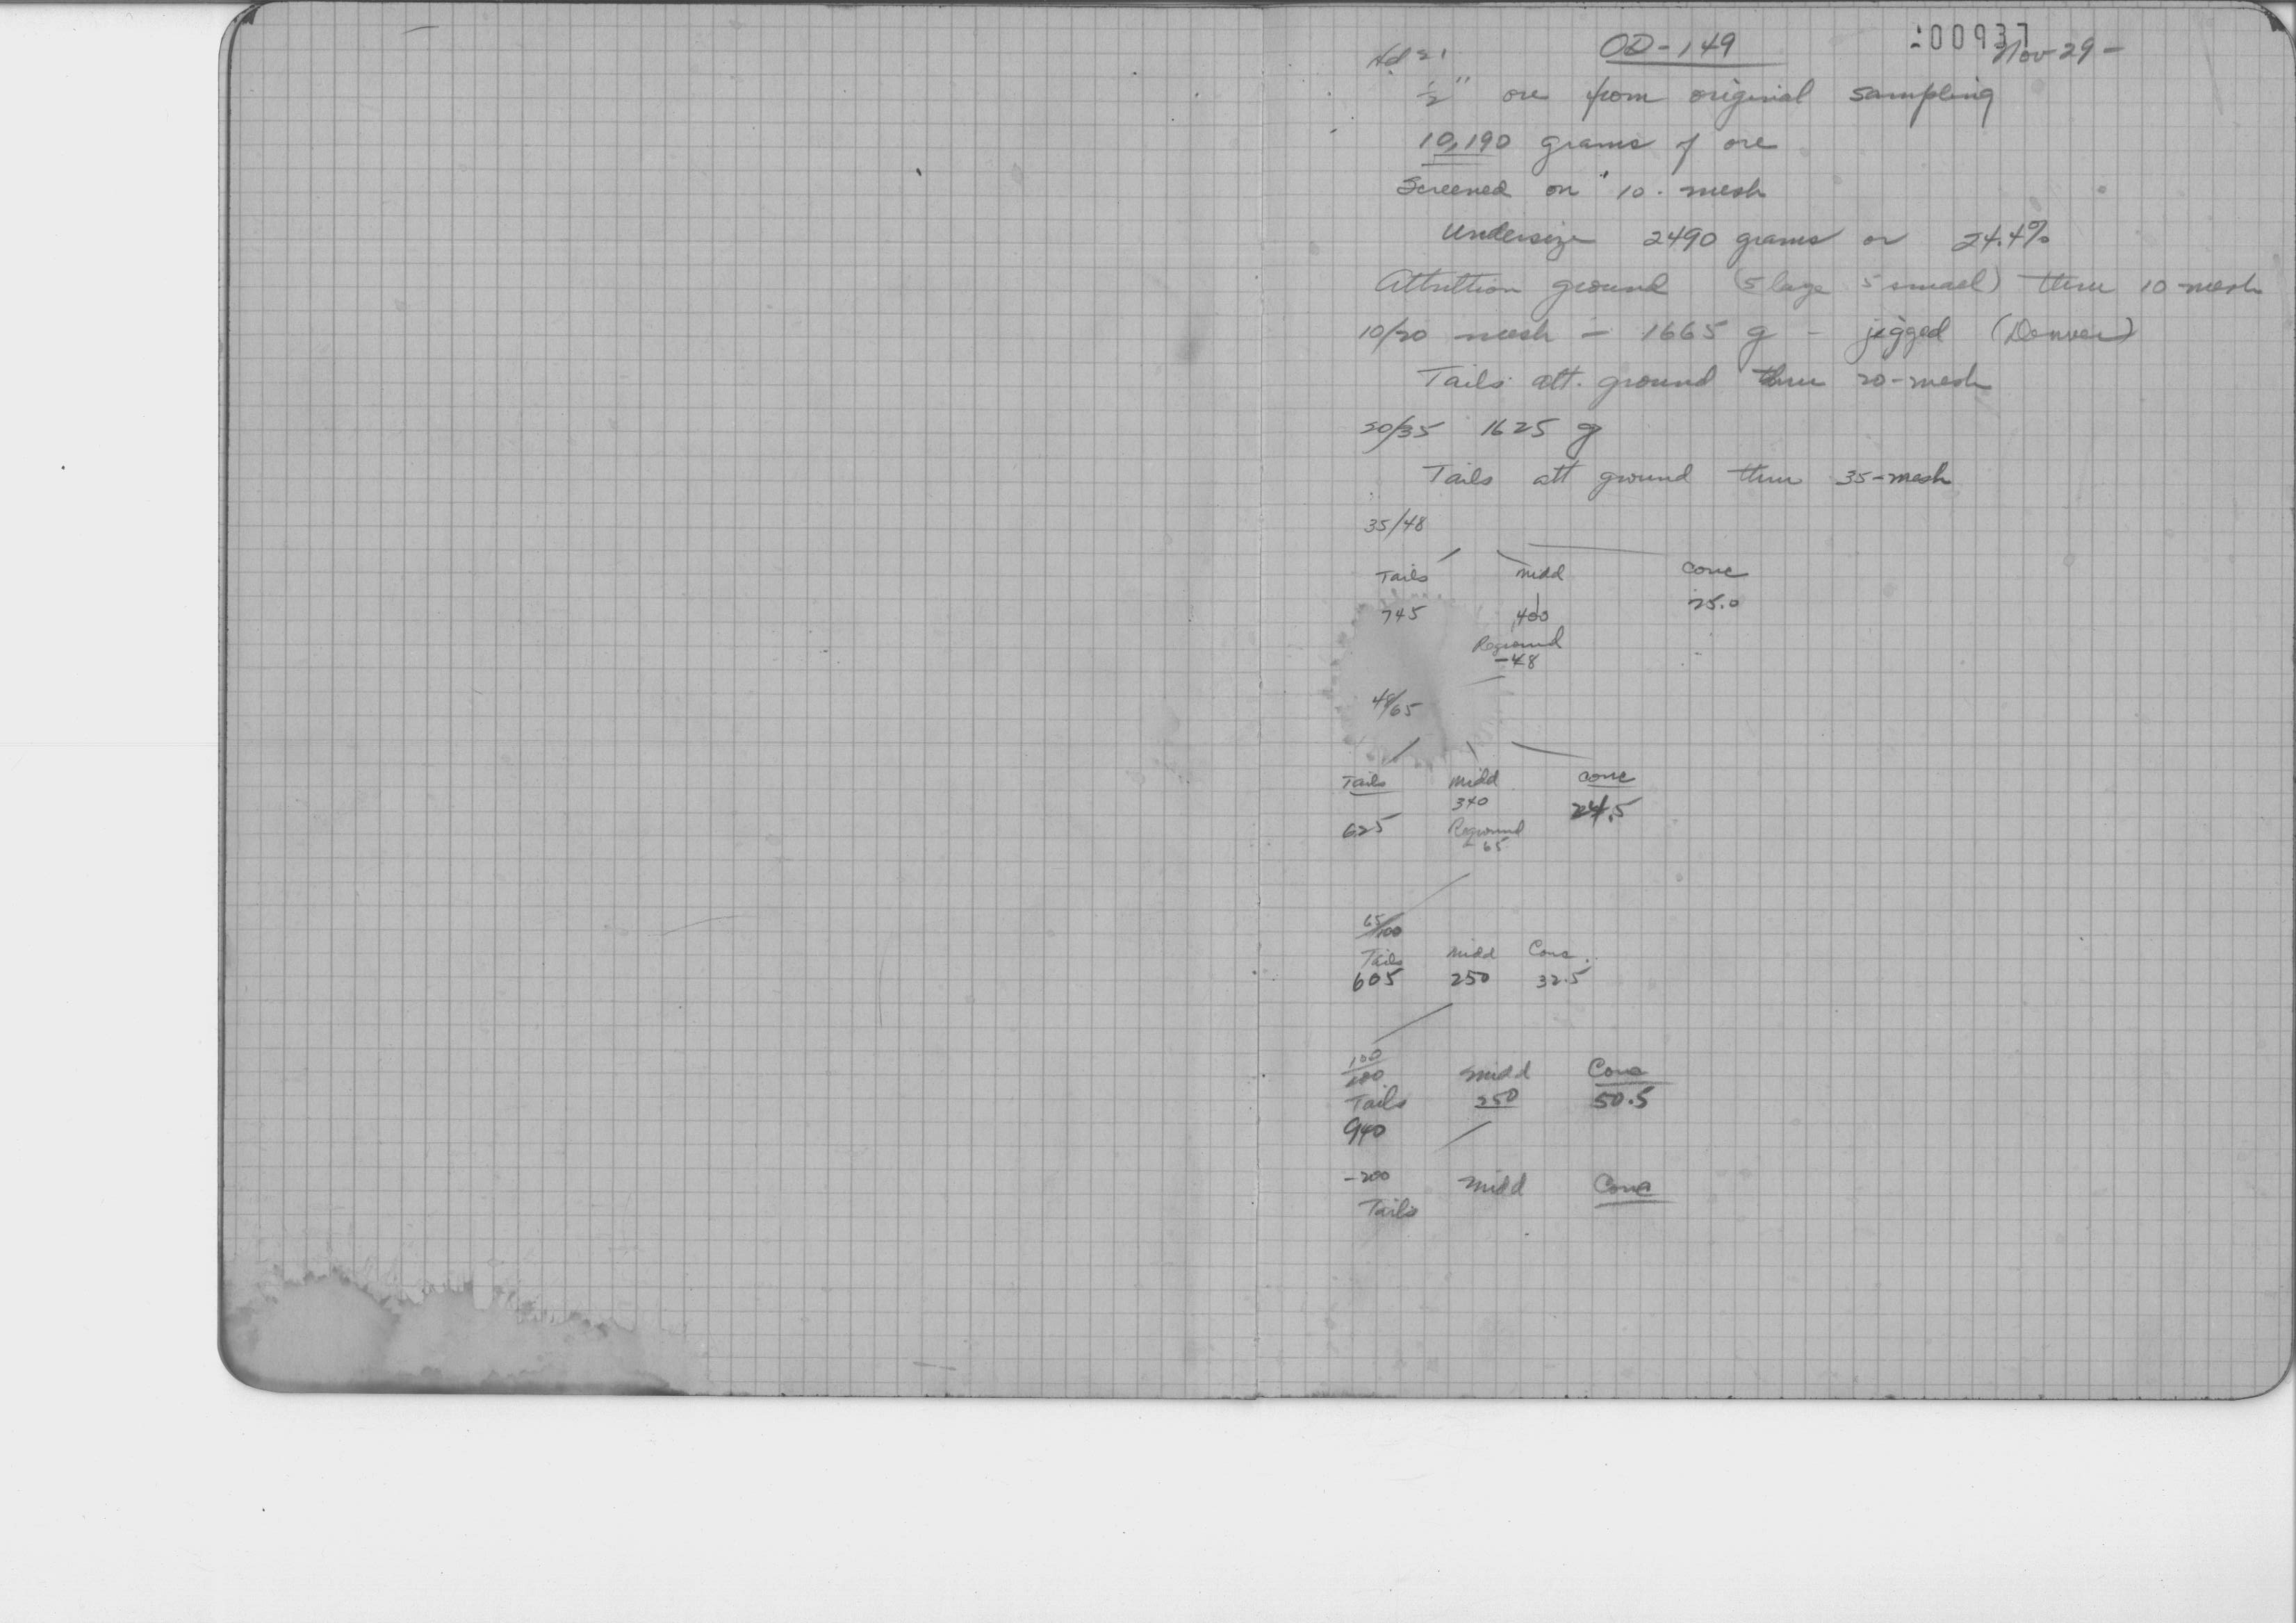 OD-149 :00937
Nov 29-
1/2" ore from original sampling
10,190 grams of ore
Screened on 10-mesh
Undersize 2490 grams or 24.4%
Attrition ground (5 large 5 small) thru 10 mesh
10/20 mesh - 1665 g - jigged (Denver)
Tails att. ground thru 20-mesh
20/35 1625 g
Tails att ground thru 35-mesh
35/48
Tails Midd Conc
745 400 25.0
Reground
-48
48/65
Tails Midd Conc
340 24.5
625 Reground
-65
65/100
Tails Midd Conc.
605 250 32.5
100/200 Midd Conc
Tails 250 50.5
940
-200 Midd Conc
Tails